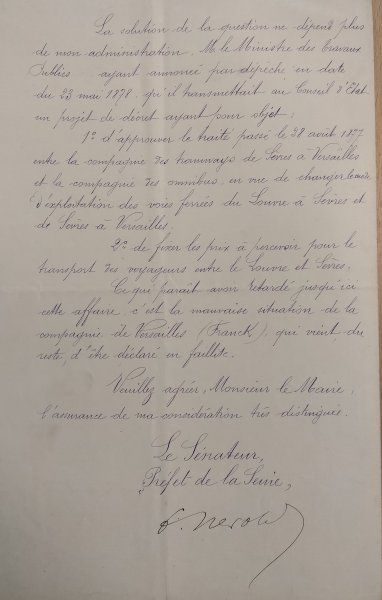 La solution de la question ne dépend plus
de mon administration. M. le Ministre des Travaux
Publics ayant annoncé par dépêche en date
du 23 mai 1878. qu'il transmettait au Conseil d'Etat
un projet de décret ayant pour objet :
1º d'approuver le traité passé le 28 août 1877
entre la compagnie des tramways de Sèvres à Versailles
et la compagnie des omnibus, en vue de changer le mode
d'exploitation des voies ferrées du Louvre à Sèvres et
de Sèvres à Versailles.
2º de fixer les prix à percevoir pour le
transport des voyageurs entre le Louvre et Sèvres.
Ce qui parait avoir retardé jusqu'ici
cette affaire, c'est la mauvaise situation de la
compagnie de Versailles (Franck), qui vient du
reste, d'être déclaré en faillite.
Veuillez agréer, Monsieur le Maire,
l'assurance de ma considération très distinguée.
Le Sénateur,
Préfet de la Seine,
F. Herold